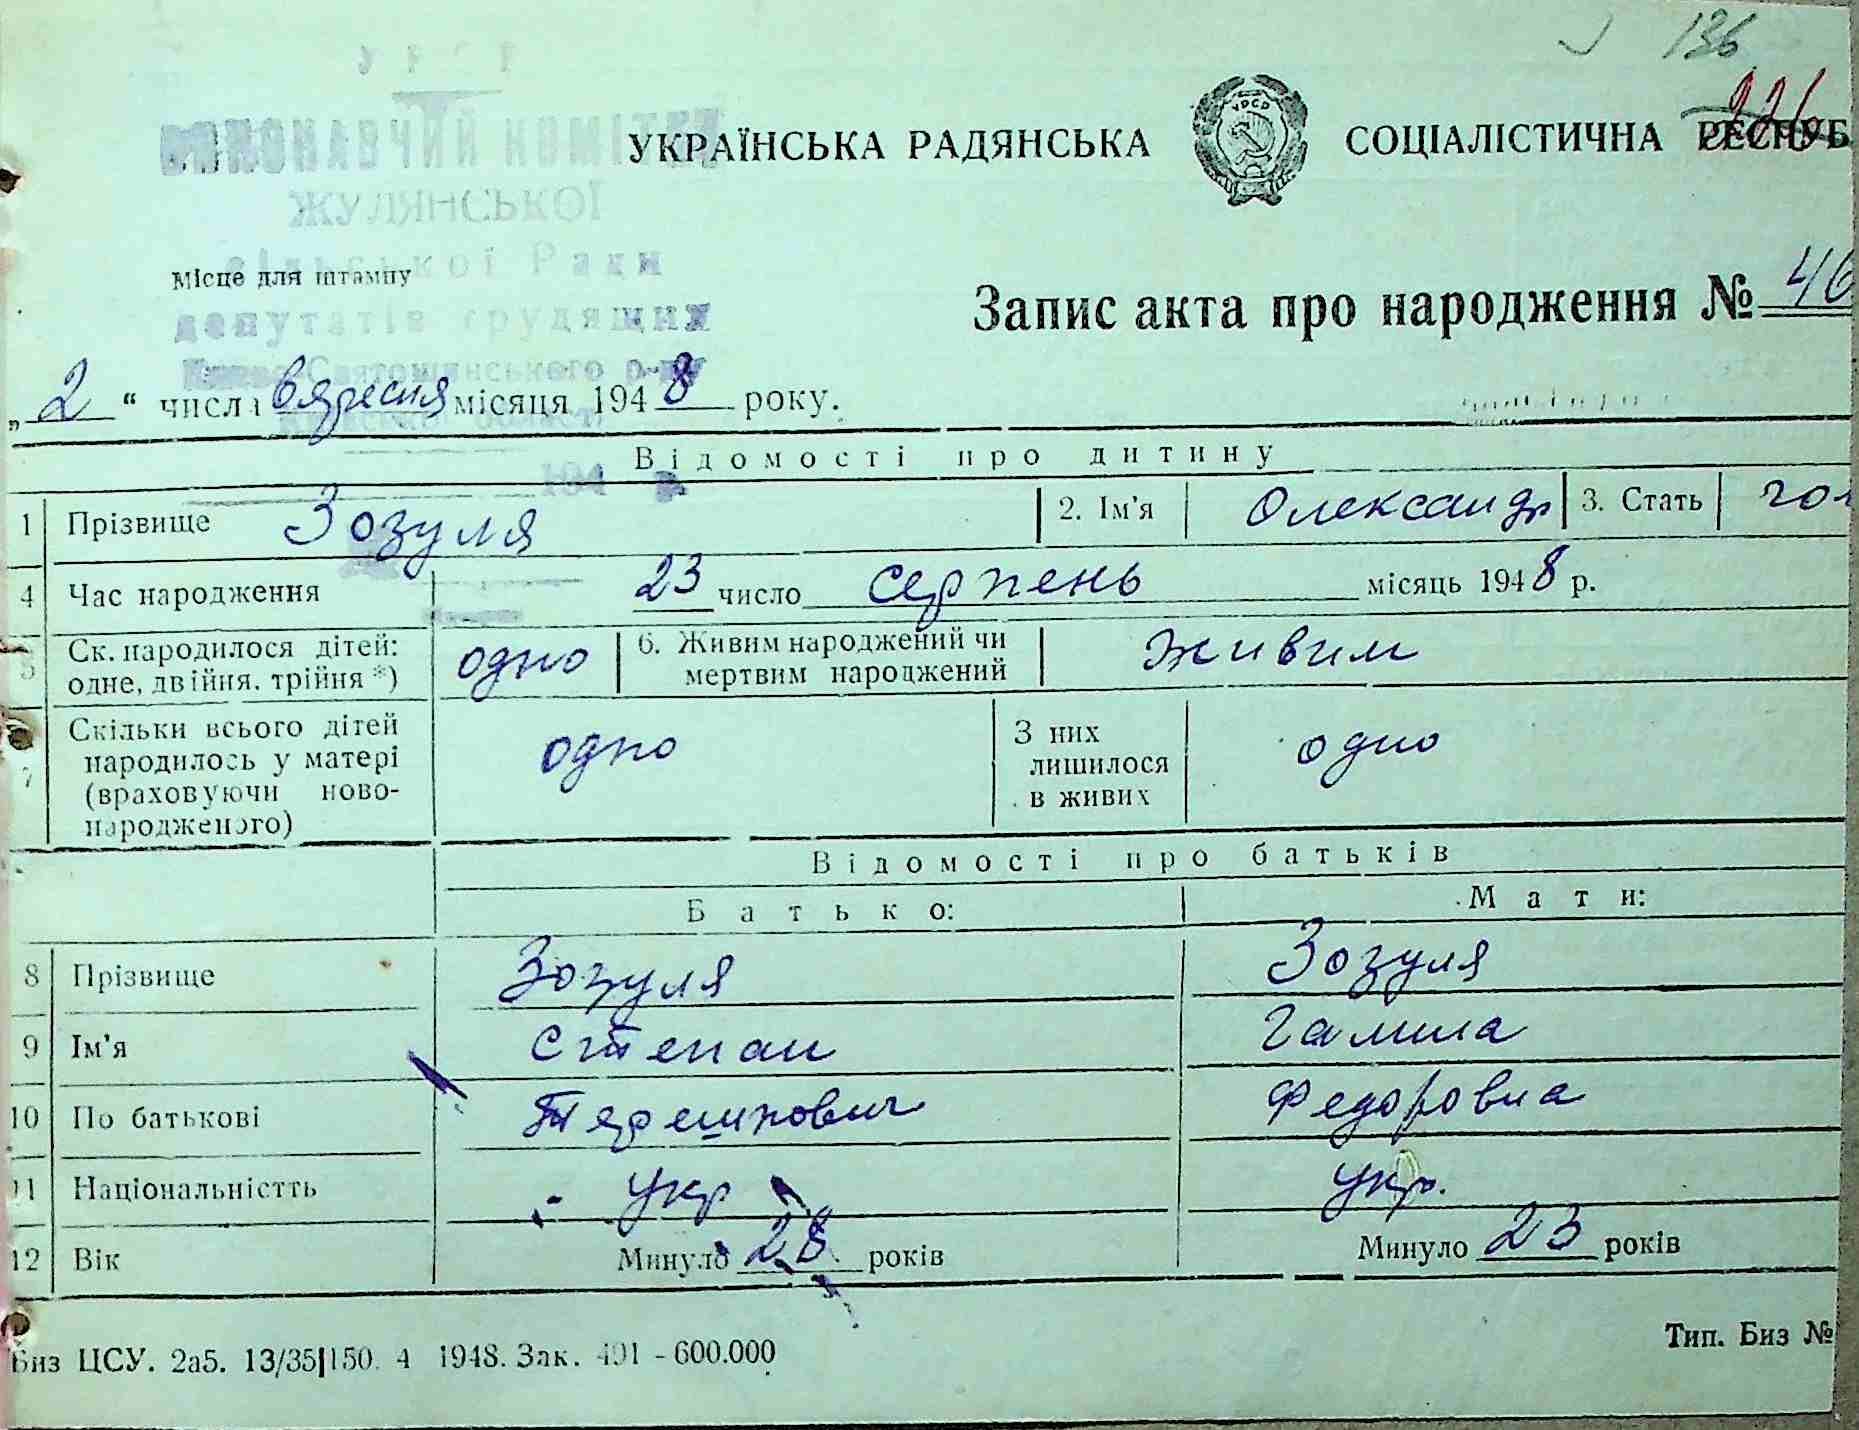 136
226
УРСР
ВИКОНАВЧИЙ КОМІТЕТ
УКРАЇНСЬКА РАДЯНСЬКА СОЦІАЛІСТИЧНА РЕСПУБ
ЖУЛЯНСЬКОЇ
сільської Ради
Місце для штампу
депутатів трудящих
Запис акта про народження № 46
Києво-Святошинського р-ну
„ 2 “ числа вяресня місяця 1948 року.
194 р.
Відомості про дитину
1 Прізвище Зозуля 2. Ім'я Олександр 3. Стать чол
4 Час народження 23 число серпень місяць 1948 р.
5 Ск. народилося дітей: одне, двійня, трійня *) одно 6. Живим народжений чи мертвим народжений живим
7 Скільки всього дітей народилось у матері (враховуючи ново-народженого) одно З них лишилося в живих одно
Відомості про батьків
Батько: Мати:
8 Прізвище Зозуля Зозуля
9 Ім'я Степан Галина
10 По батькові Терешкович Федоровна
11 Національністть укр укр.
12 Вік Минуло 28 років Минуло 23 років
Биз ЦСУ. 2а5. 13/35|150. 4 1948. Зак. 491 - 600.000
Тип. Биз №